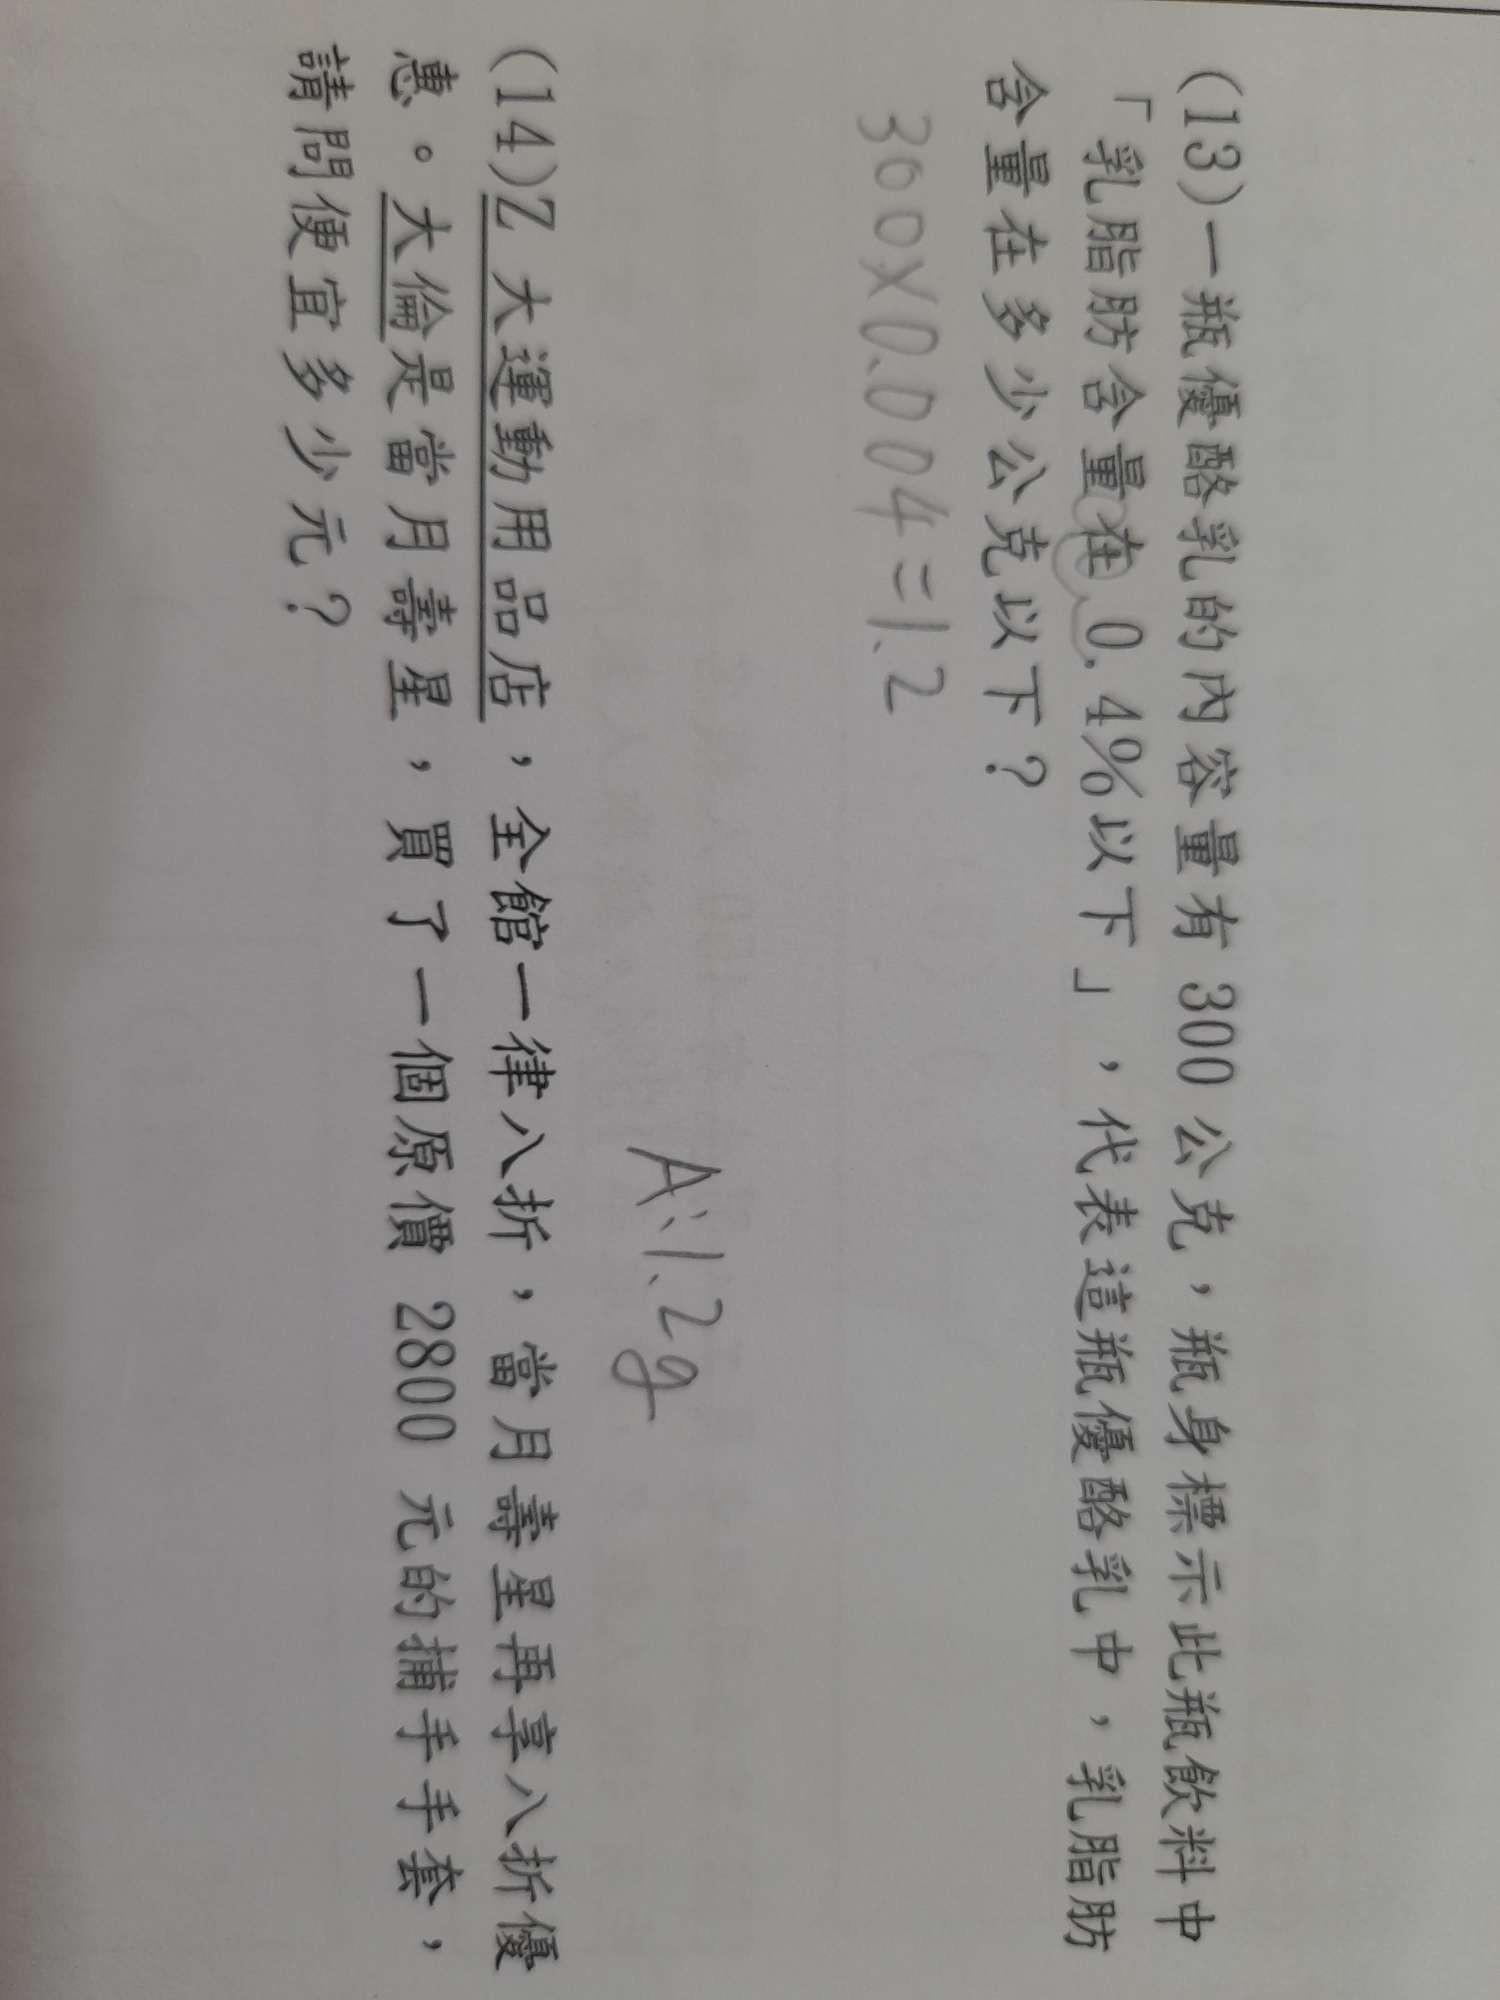 (13)一瓶優酪乳的內容量有 300 公克，瓶身標示此瓶飲料中
「乳脂肪含量在 0.4%以下」，代表這瓶優酪乳中，乳脂肪
含量在多少公克以下？
300×0.004=1.2
A:1.2g
(14)Z 大運動用品店，全館一律八折，當月壽星再享八折優
惠。大倫是當月壽星，買了一個原價 2800 元的捕手手套，
請問便宜多少元？